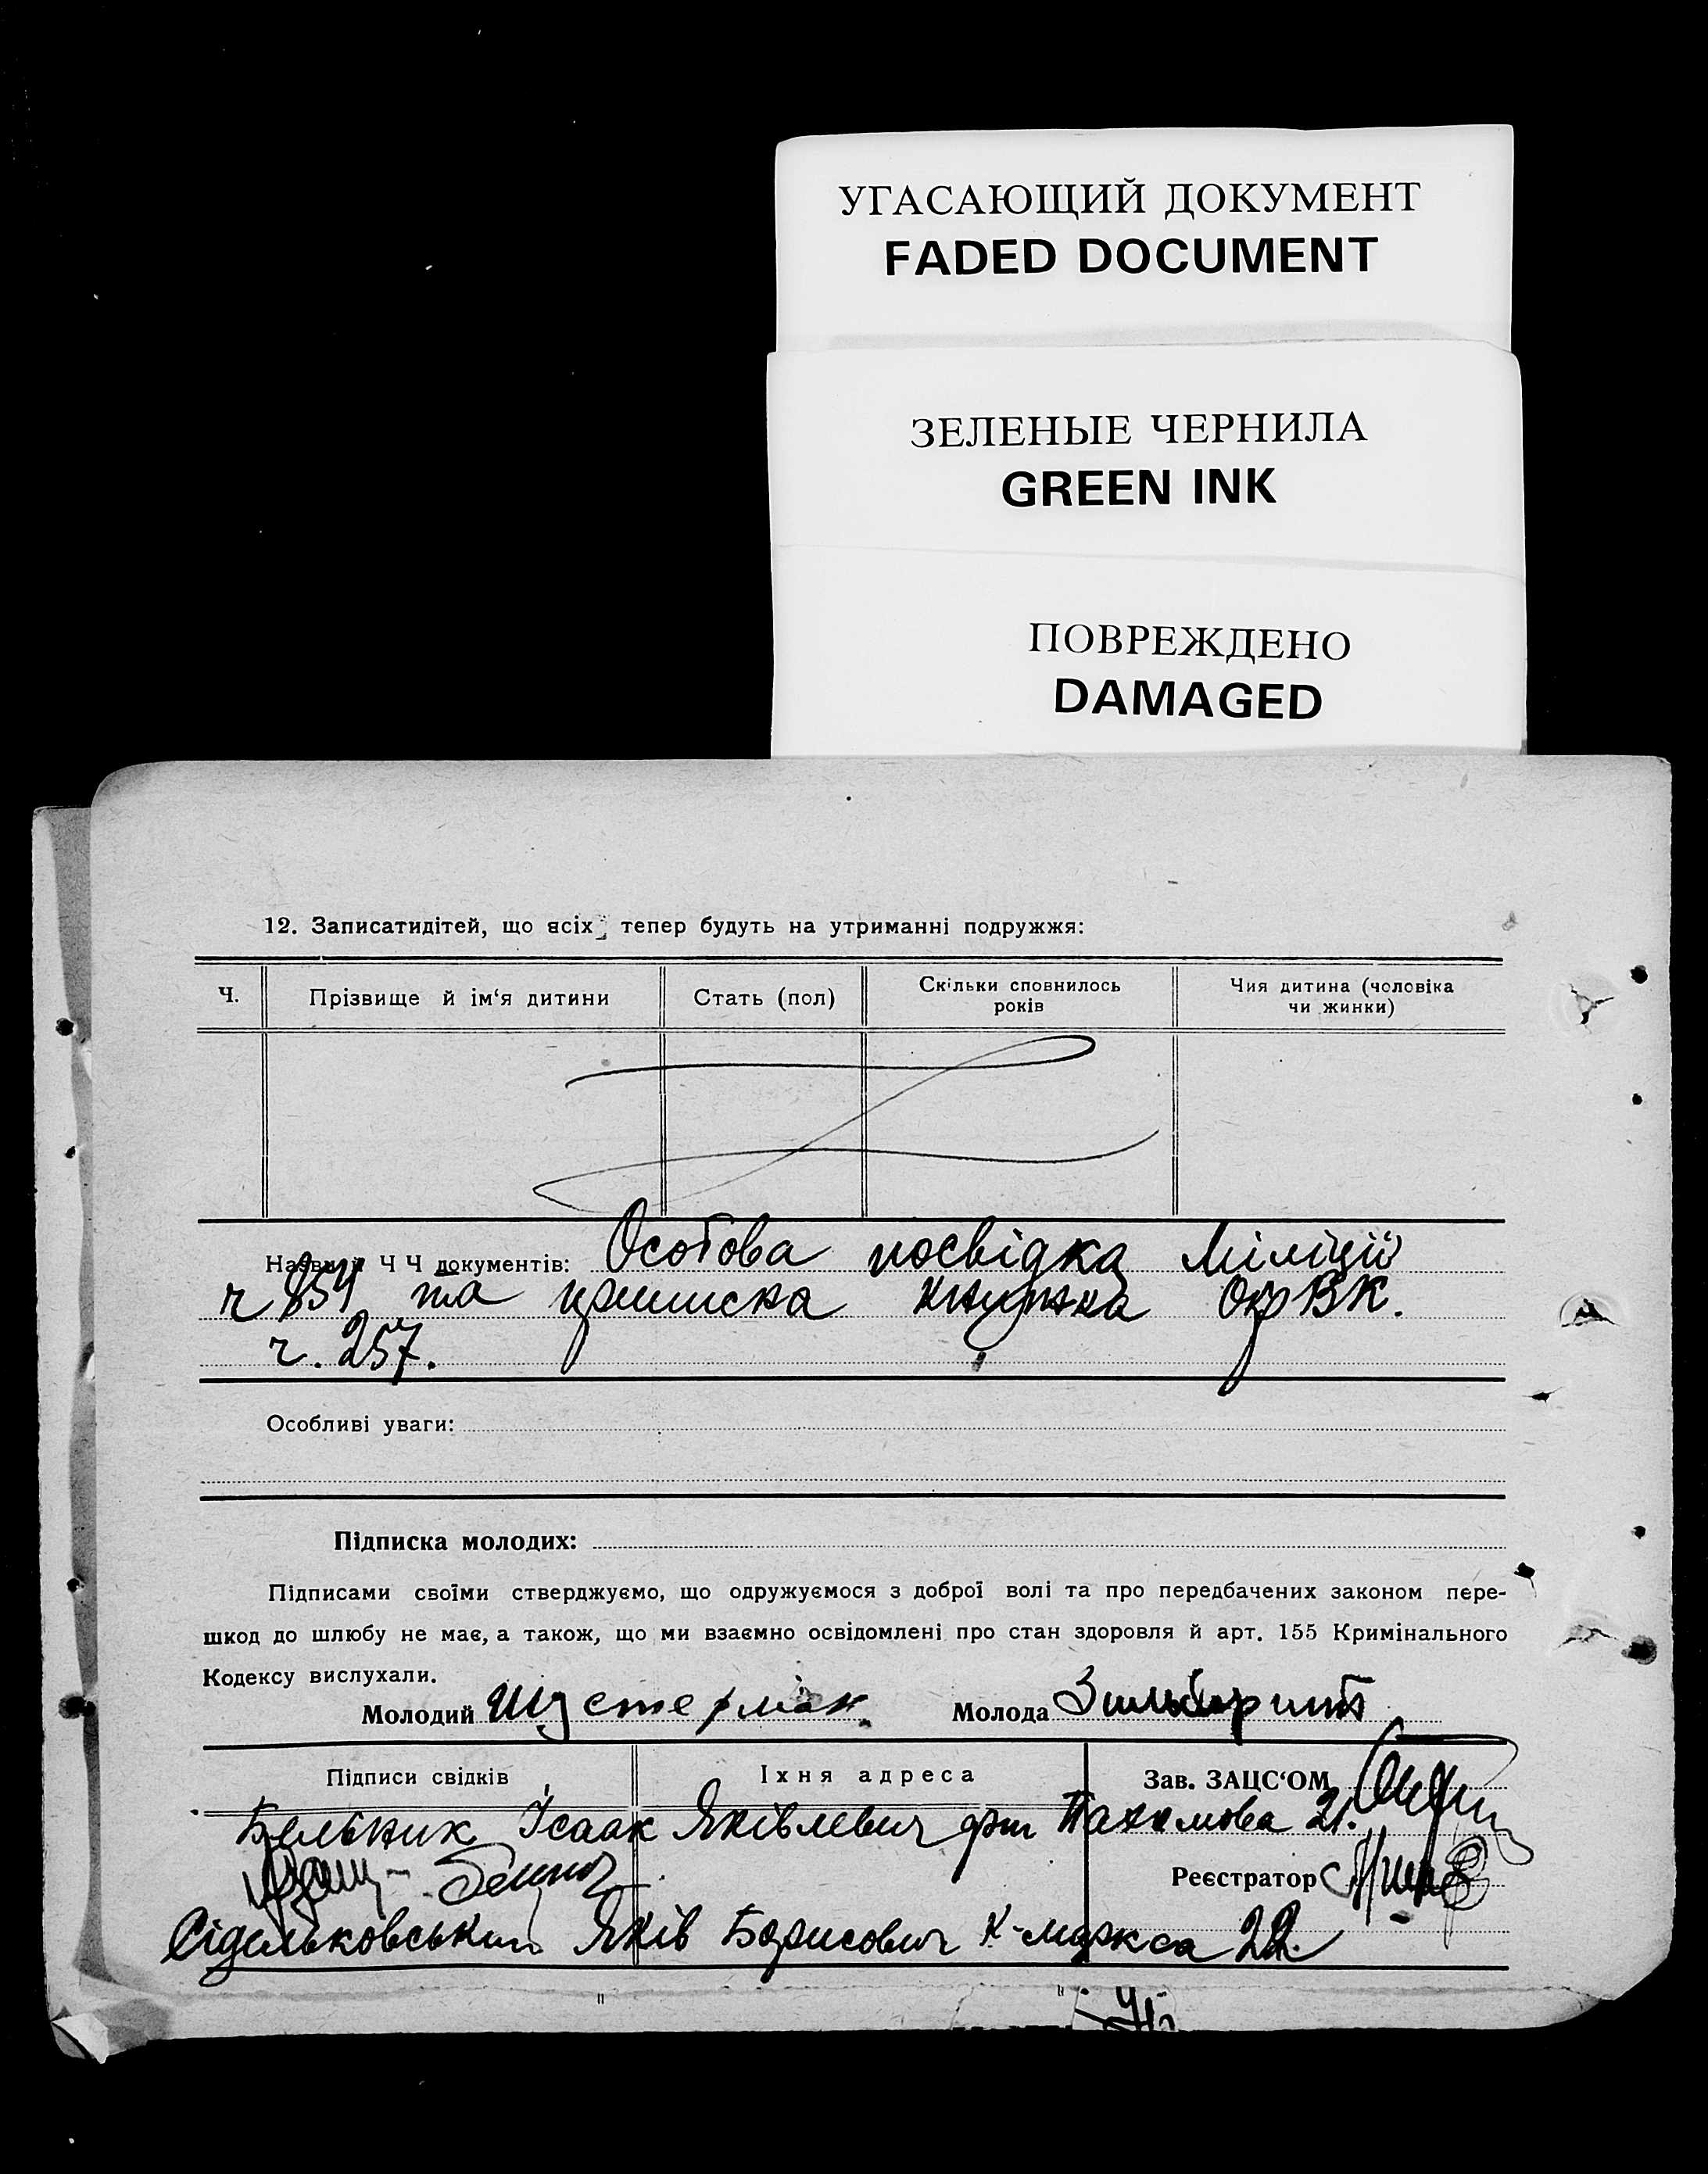 УГАСАЮЩИЙ ДОКУМЕНТ
FADED DOCUMENT
ЗЕЛЕНЫЕ ЧЕРНИЛА
GREEN INK
ПОВРЕЖДЕНО
DAMAGED
12. Записатидітей, що всіх тепер будуть на утриманні подружжя:
Ч. Прізвище й ім'я дитини Стать (пол) Скільки сповнилось років Чия дитина (чоловіка чи жинки)
Назви й Ч Ч документів: Особова посвідка Міліції
ч 854 та приписка книжка ОкрВК.
ч. 257.
Особливі уваги:
Підписка молодих:
Підписами своїми стверджуємо, що одружуємося з доброї волі та про передбачених законом пере-
шкод до шлюбу не має, а також, що ми взаємно освідомлені про стан здоровля й арт. 155 Кримінального
Кодексу вислухали.
Молодий Шустерман. Молода
Підписи свідків Їхня адреса Зав. ЗАЦС'ОМ
Бельник Ісаак Яківлевич Пахомова 21.
Реєстратор
Сідельковський Яків Борисович К-маркса 22.